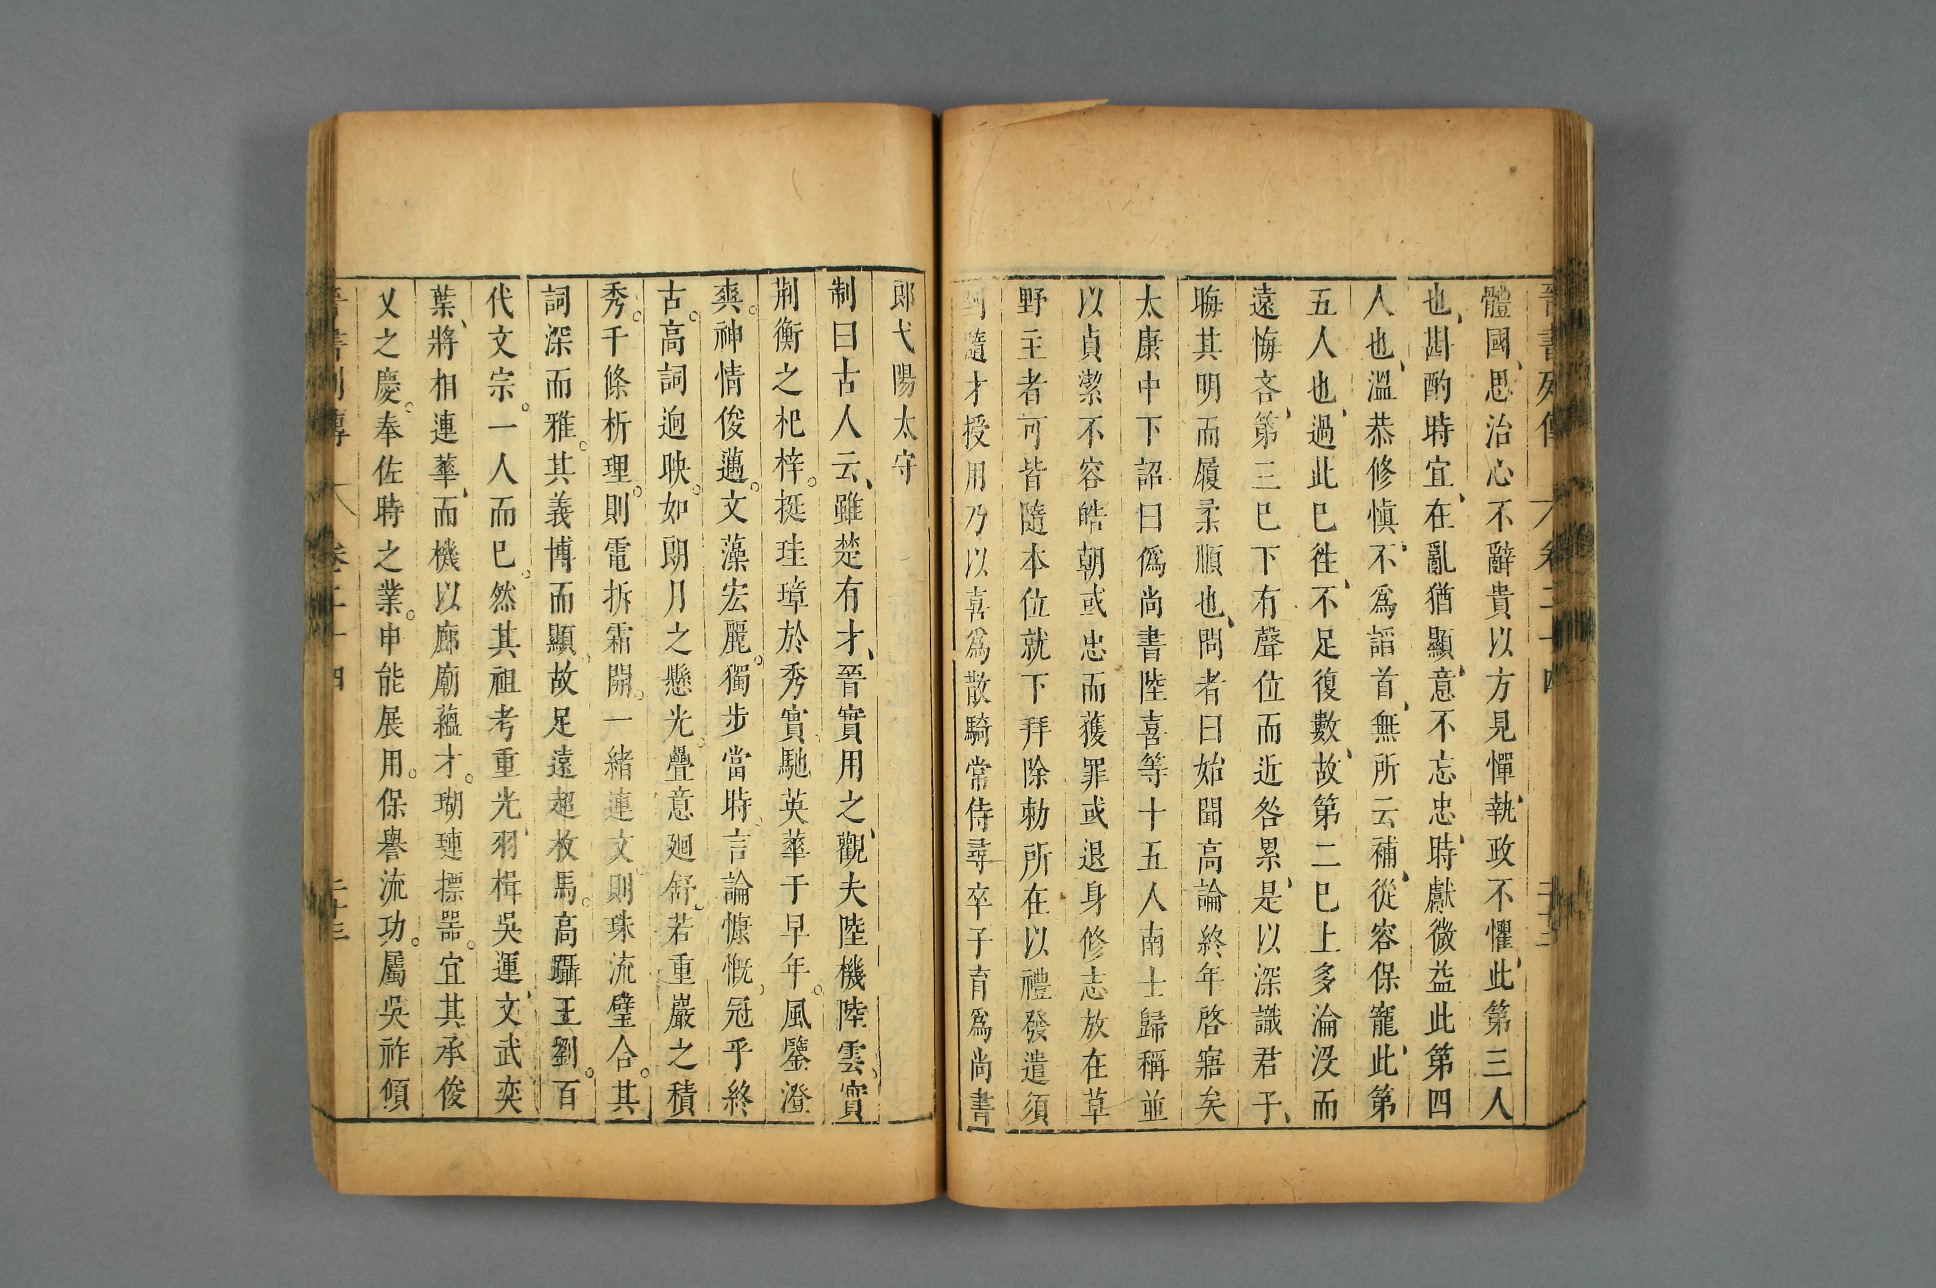 晉書列傳 卷二十四
體國、思治心不辭貴以方見憚、執政不懼、此第三人
也、斟酌時宜、在亂猶顯、意不忘忠、時獻微益此第四
人也、溫恭修慎、不為諂首、無所云補、從容保寵、此第
五人也、過此已徃、不足復數、故第二已上多淪沒而
遠悔吝、第三已下有聲位而近咎累、是以深識君子、
晦其明而履柔順也、問者曰始聞高論終年啓寤矣
太康中下詔曰偽尚書陸喜等十五人南士歸稱並
以貞潔不容皓朝或忠而獲罪或退身修志放在草
野主者可皆隨本位就下拜除勅所在以禮發遣須
到隨才授用乃以喜為散騎常侍尋卒子育為尚書
郎弋陽太守
制曰古人云、雖楚有才、晉實用之、觀夫陸機陸雲、實
荆衡之杞梓。挺珪璋於秀實馳英華于早年。風鑒澄
爽。神情俊邁。文藻宏麗。獨步當時。言論慷慨。冠乎終
古。高詞逈映。如朗月之懸光。疊意廻舒。若重巖之積
秀。千條析理。則電拆霜開。一緒連文。則珠流璧合。其
詞深而雅。其義博而顯、故足遠超枚馬。高躡王劉。百
代文宗。一人而已。然其祖考重光、羽楫吳運、文武奕
葉、將相連華、而機以廊廟蘊才。瑚璉標器。宜其承俊
乂之慶。奉佐時之業。申能展用。保譽流功。屬吳祚傾
晉書列傳 卷二十四 二十三